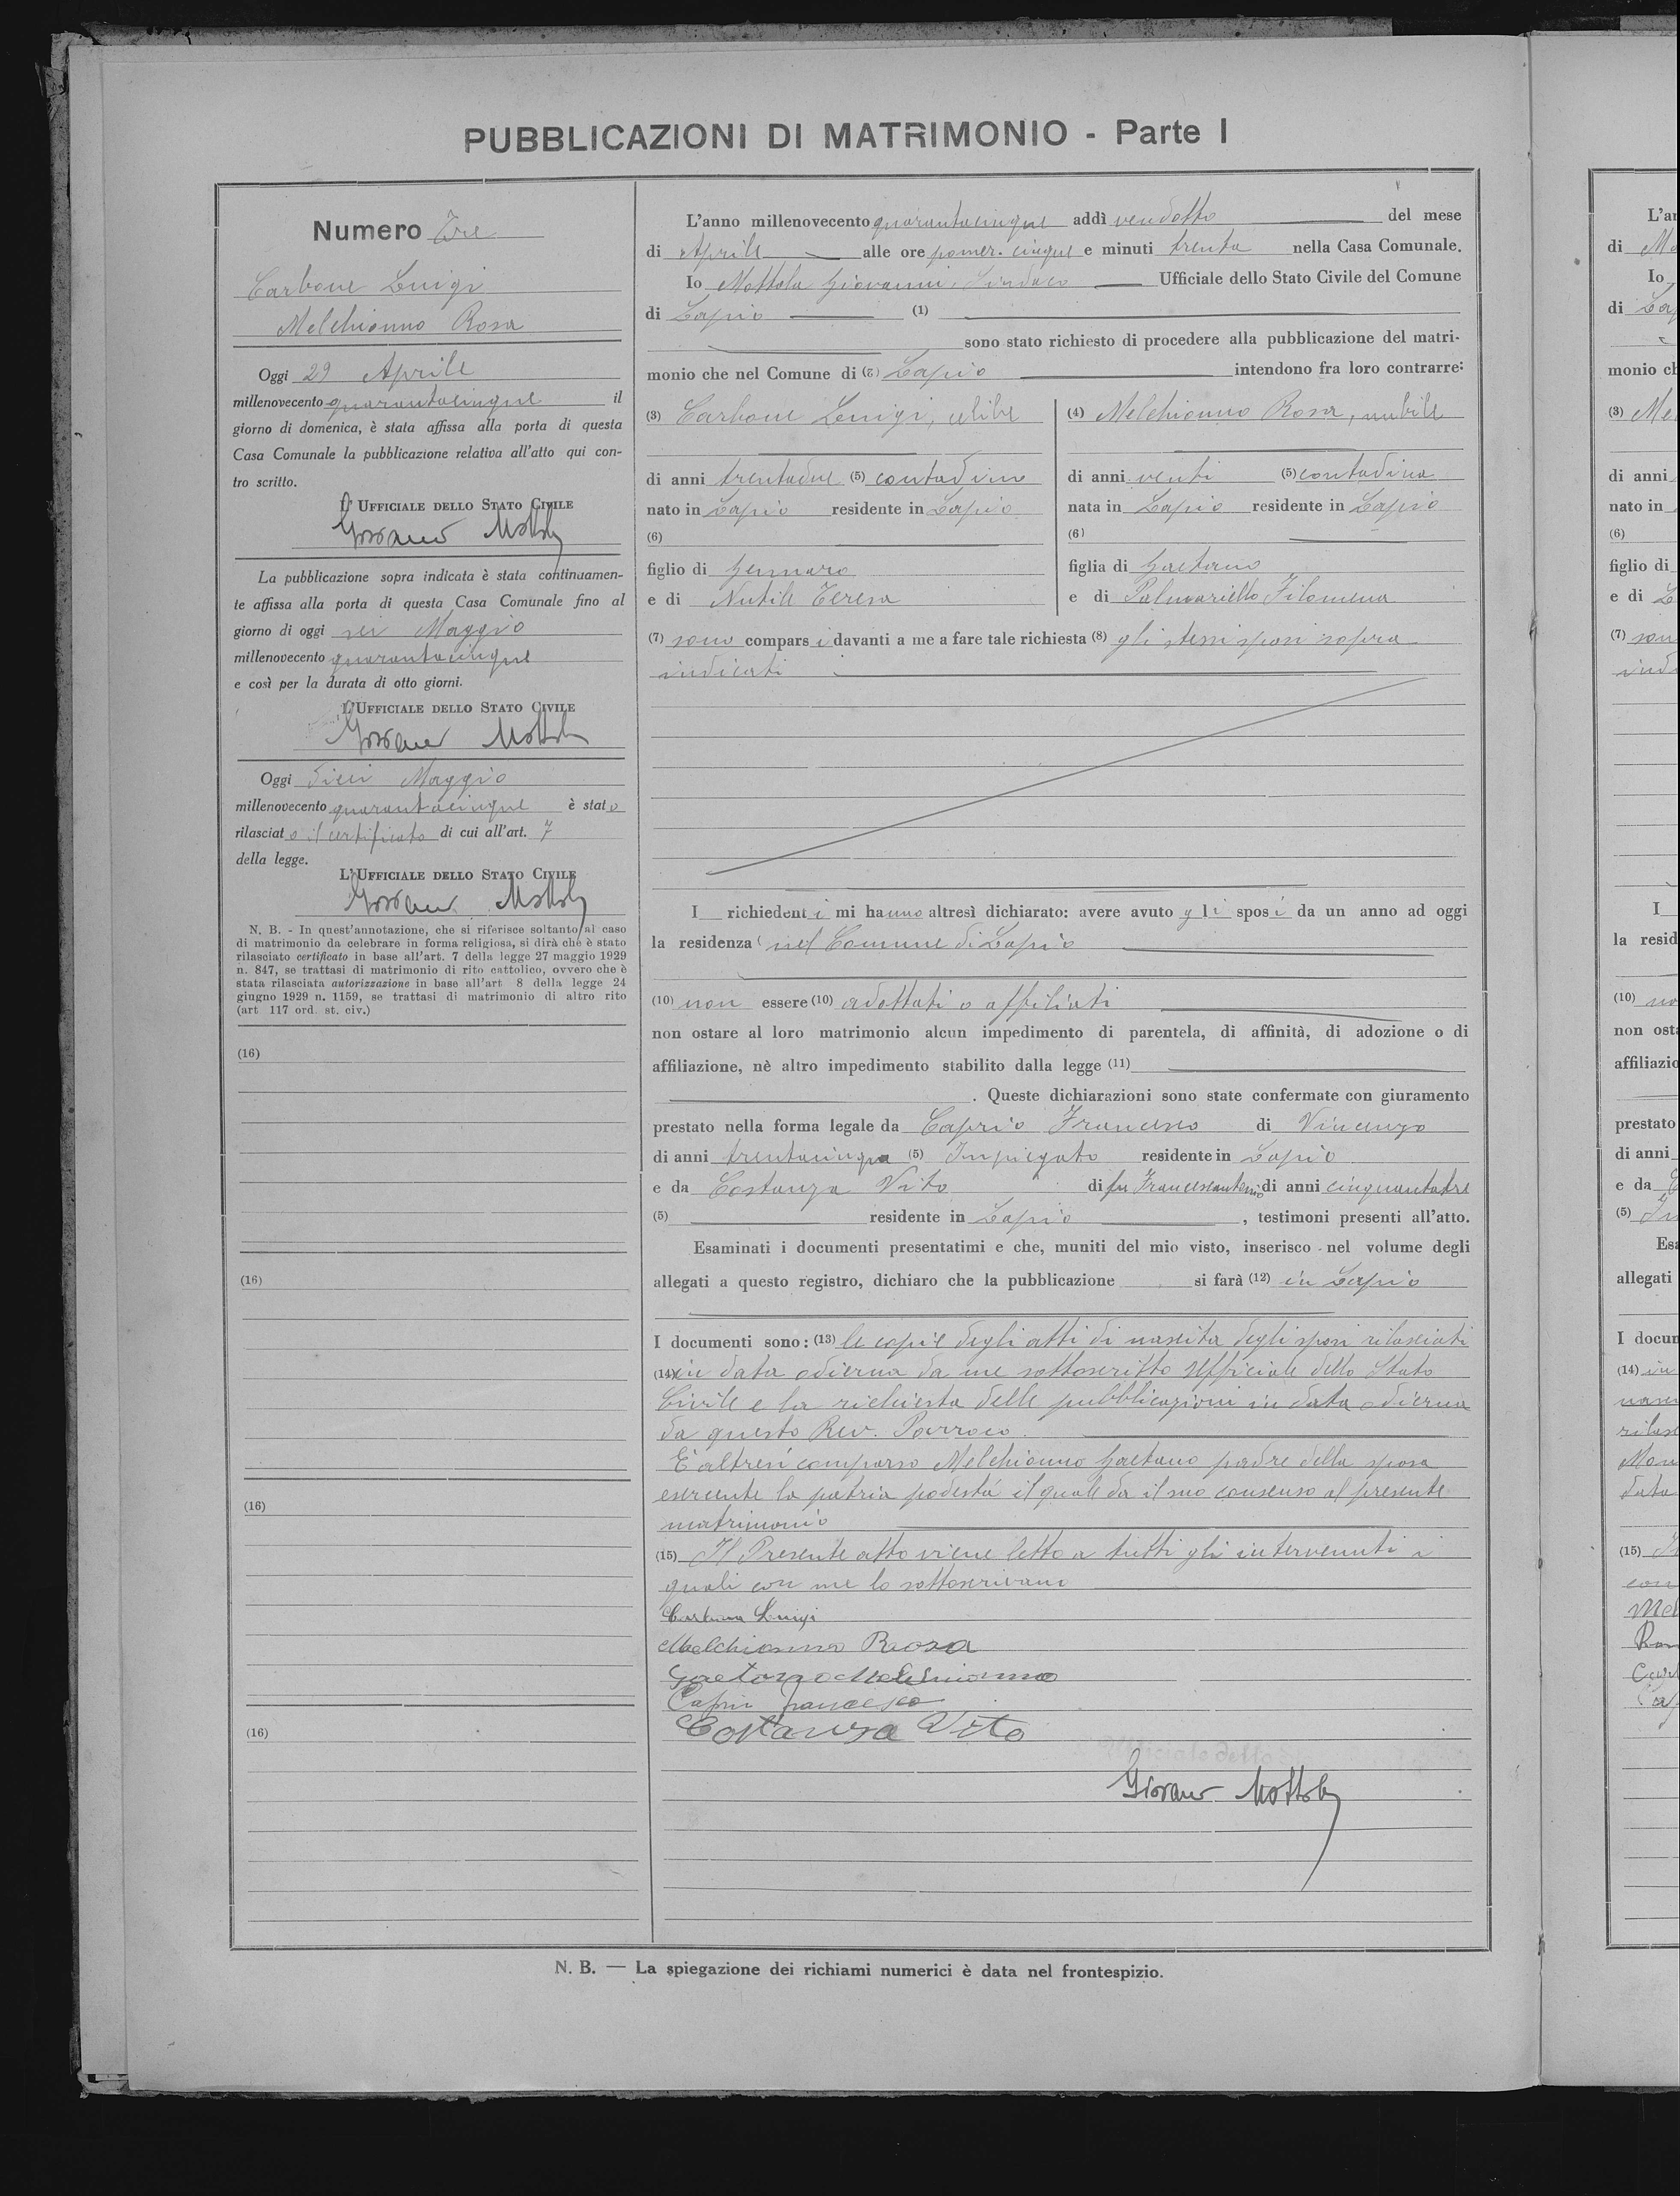 PUBBLICAZIONI DI MATRIMONIO - Parte I
Numero Tre
Carbone Luigi
Melchionno Rosa
Oggi 29 Aprile
millenovecento quarantacinque il
giorno di domenica, è stata affissa alla porta di questa
Casa Comunale la pubblicazione relativa all'atto qui con-
tro scritto.
L'UFFICIALE DELLO STATO CIVILE
Giovanni Mottola
La pubblicazione sopra indicata è stata continuamen-
te affissa alla porta di questa Casa Comunale fino al
giorno di oggi sei Maggio
millenovecento quarantacinque
e così per la durata di otto giorni.
L'UFFICIALE DELLO STATO CIVILE
Giovanni Mottola
Oggi dieci Maggio
millenovecento quarantacinque è stato
rilasciato il certificato di cui all'art. 7
della legge.
L'UFFICIALE DELLO STATO CIVILE
Giovanni Mottola
N. B. - In quest'annotazione, che si riferisce soltanto al caso
di matrimonio da celebrare in forma religiosa, si dirà che è stato
rilasciato certificato in base all'art. 7 della legge 27 maggio 1929
n. 847, se trattasi di matrimonio di rito cattolico, ovvero che è
stata rilasciata autorizzazione in base all'art 8 della legge 24
giugno 1929 n. 1159, se trattasi di matrimonio di altro rito
(art 117 ord. st. civ.)
(16)
(16)
(16)
(16)
L'anno millenovecento quarantacinque addì ventotto del mese
di Aprile alle ore pomer. cinque e minuti trenta nella Casa Comunale.
Io Mottola Giovanni, Sindaco Ufficiale dello Stato Civile del Comune
di Lapio (1)
sono stato richiesto di procedere alla pubblicazione del matri-
monio che nel Comune di (2) Lapio intendono fra loro contrarre:
(3) Carbone Luigi, celibe
di anni trentadue (5) contadino
nato in Lapio residente in Lapio
(6)
figlio di Gennaro
e di Nutile Teresa
(4) Melchionno Rosa, nubile
di anni venti (5) contadina
nata in Lapio residente in Lapio
(6)
figlia di Gaetano
e di Palmariello Filomena
(7) sono comparsi davanti a me a fare tale richiesta (8) gli stessi sposi sopra
indicati
I richiedenti mi hanno altresì dichiarato: avere avuto gli sposi da un anno ad oggi
la residenza nel Comune di Lapio
(10) non essere (10) adottati o affiliati
non ostare al loro matrimonio alcun impedimento di parentela, di affinità, di adozione o di
affiliazione, nè altro impedimento stabilito dalla legge (11)
. Queste dichiarazioni sono state confermate con giuramento
prestato nella forma legale da Caprio Francesco di Vincenzo
di anni trentacinque (5) Impiegato residente in Lapio
e da Costanza Vito di fu Francescantonio di anni cinquantatre
(5) residente in Lapio , testimoni presenti all'atto.
Esaminati i documenti presentatimi e che, muniti del mio visto, inserisco nel volume degli
allegati a questo registro, dichiaro che la pubblicazione si farà (12) in Lapio
I documenti sono: (13) le copie degli atti di nascita degli sposi rilasciati
(14) in data odierna da me sottoscritto Ufficiale dello Stato
Civile e la richiesta delle pubblicazioni in data odierna
da questo Rev. Parroco.
E' altresì comparso Melchionno Gaetano padre della sposa
esercente la patria podestà il quale da il suo consenso al presente
matrimonio
(15) Il Presente atto viene letto a tutti gli intervenuti i
quali con me lo sottoscrivano
Carbone Luigi
Melchionno Rosa
Gaetano Melchionno
Caprio Francesco
Costanza Vito
Ufficiale dello
Giovanni Mottola
N. B. — La spiegazione dei richiami numerici è data nel frontespizio.
di
Io
di
monio
(3)
di anni
nato in
(6)
figlio di
e di
(7)
I
la resid
(10)
non osta
affiliazio
prestato
di anni
e da
(5)
Esa
allegati
I docum
(14) in
(15)